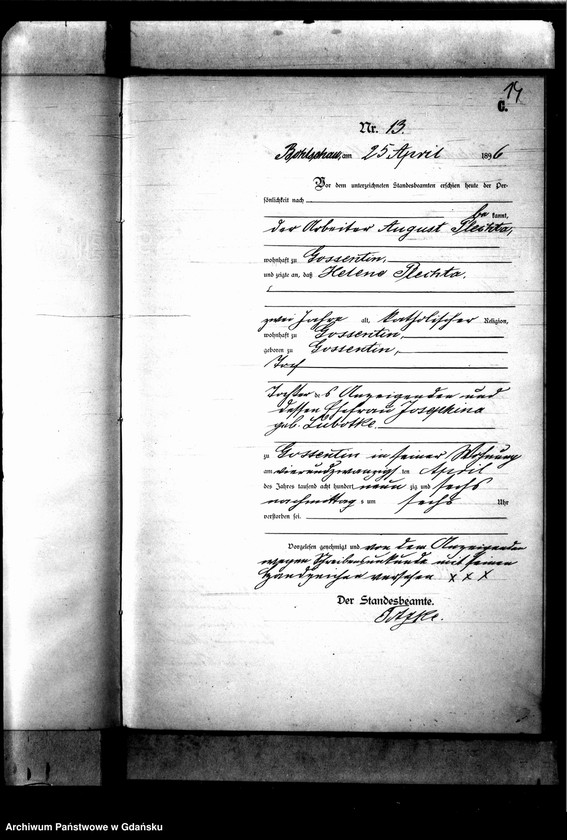 14
C.
Nr. 13.
Bohlschau, am 25 April 1896
Vor dem unterzeichneten Standesbeamten erschien heute der Per-
sönlichkeit nach
be kannt,
der Arbeiter August Plechta,
wohnhaft zu Gossentin,
und zeigte an, daß Helene Plechta,
zwei Jahre alt, katholischer Religion,
wohnhaft zu Gossentin,
geboren zu Gossentin,
Toch
Tochter des Anzeigenden und
dessen Ehefrau Josephina
geb. Lubotke
zu Gossentin in seiner Wohnung
am vierundzwanzigsten April
des Jahres tausend acht hundert neun zig und sechs
nachmittags um sechs Uhr
verstorben sei.
Vorgelesen genehmigt und von dem Anzeigenden
wegen Schreibensunkunde mit seinen
Handzeichen versehen x x x
Der Standesbeamte.
Archiwum Państwowe w Gdańsku